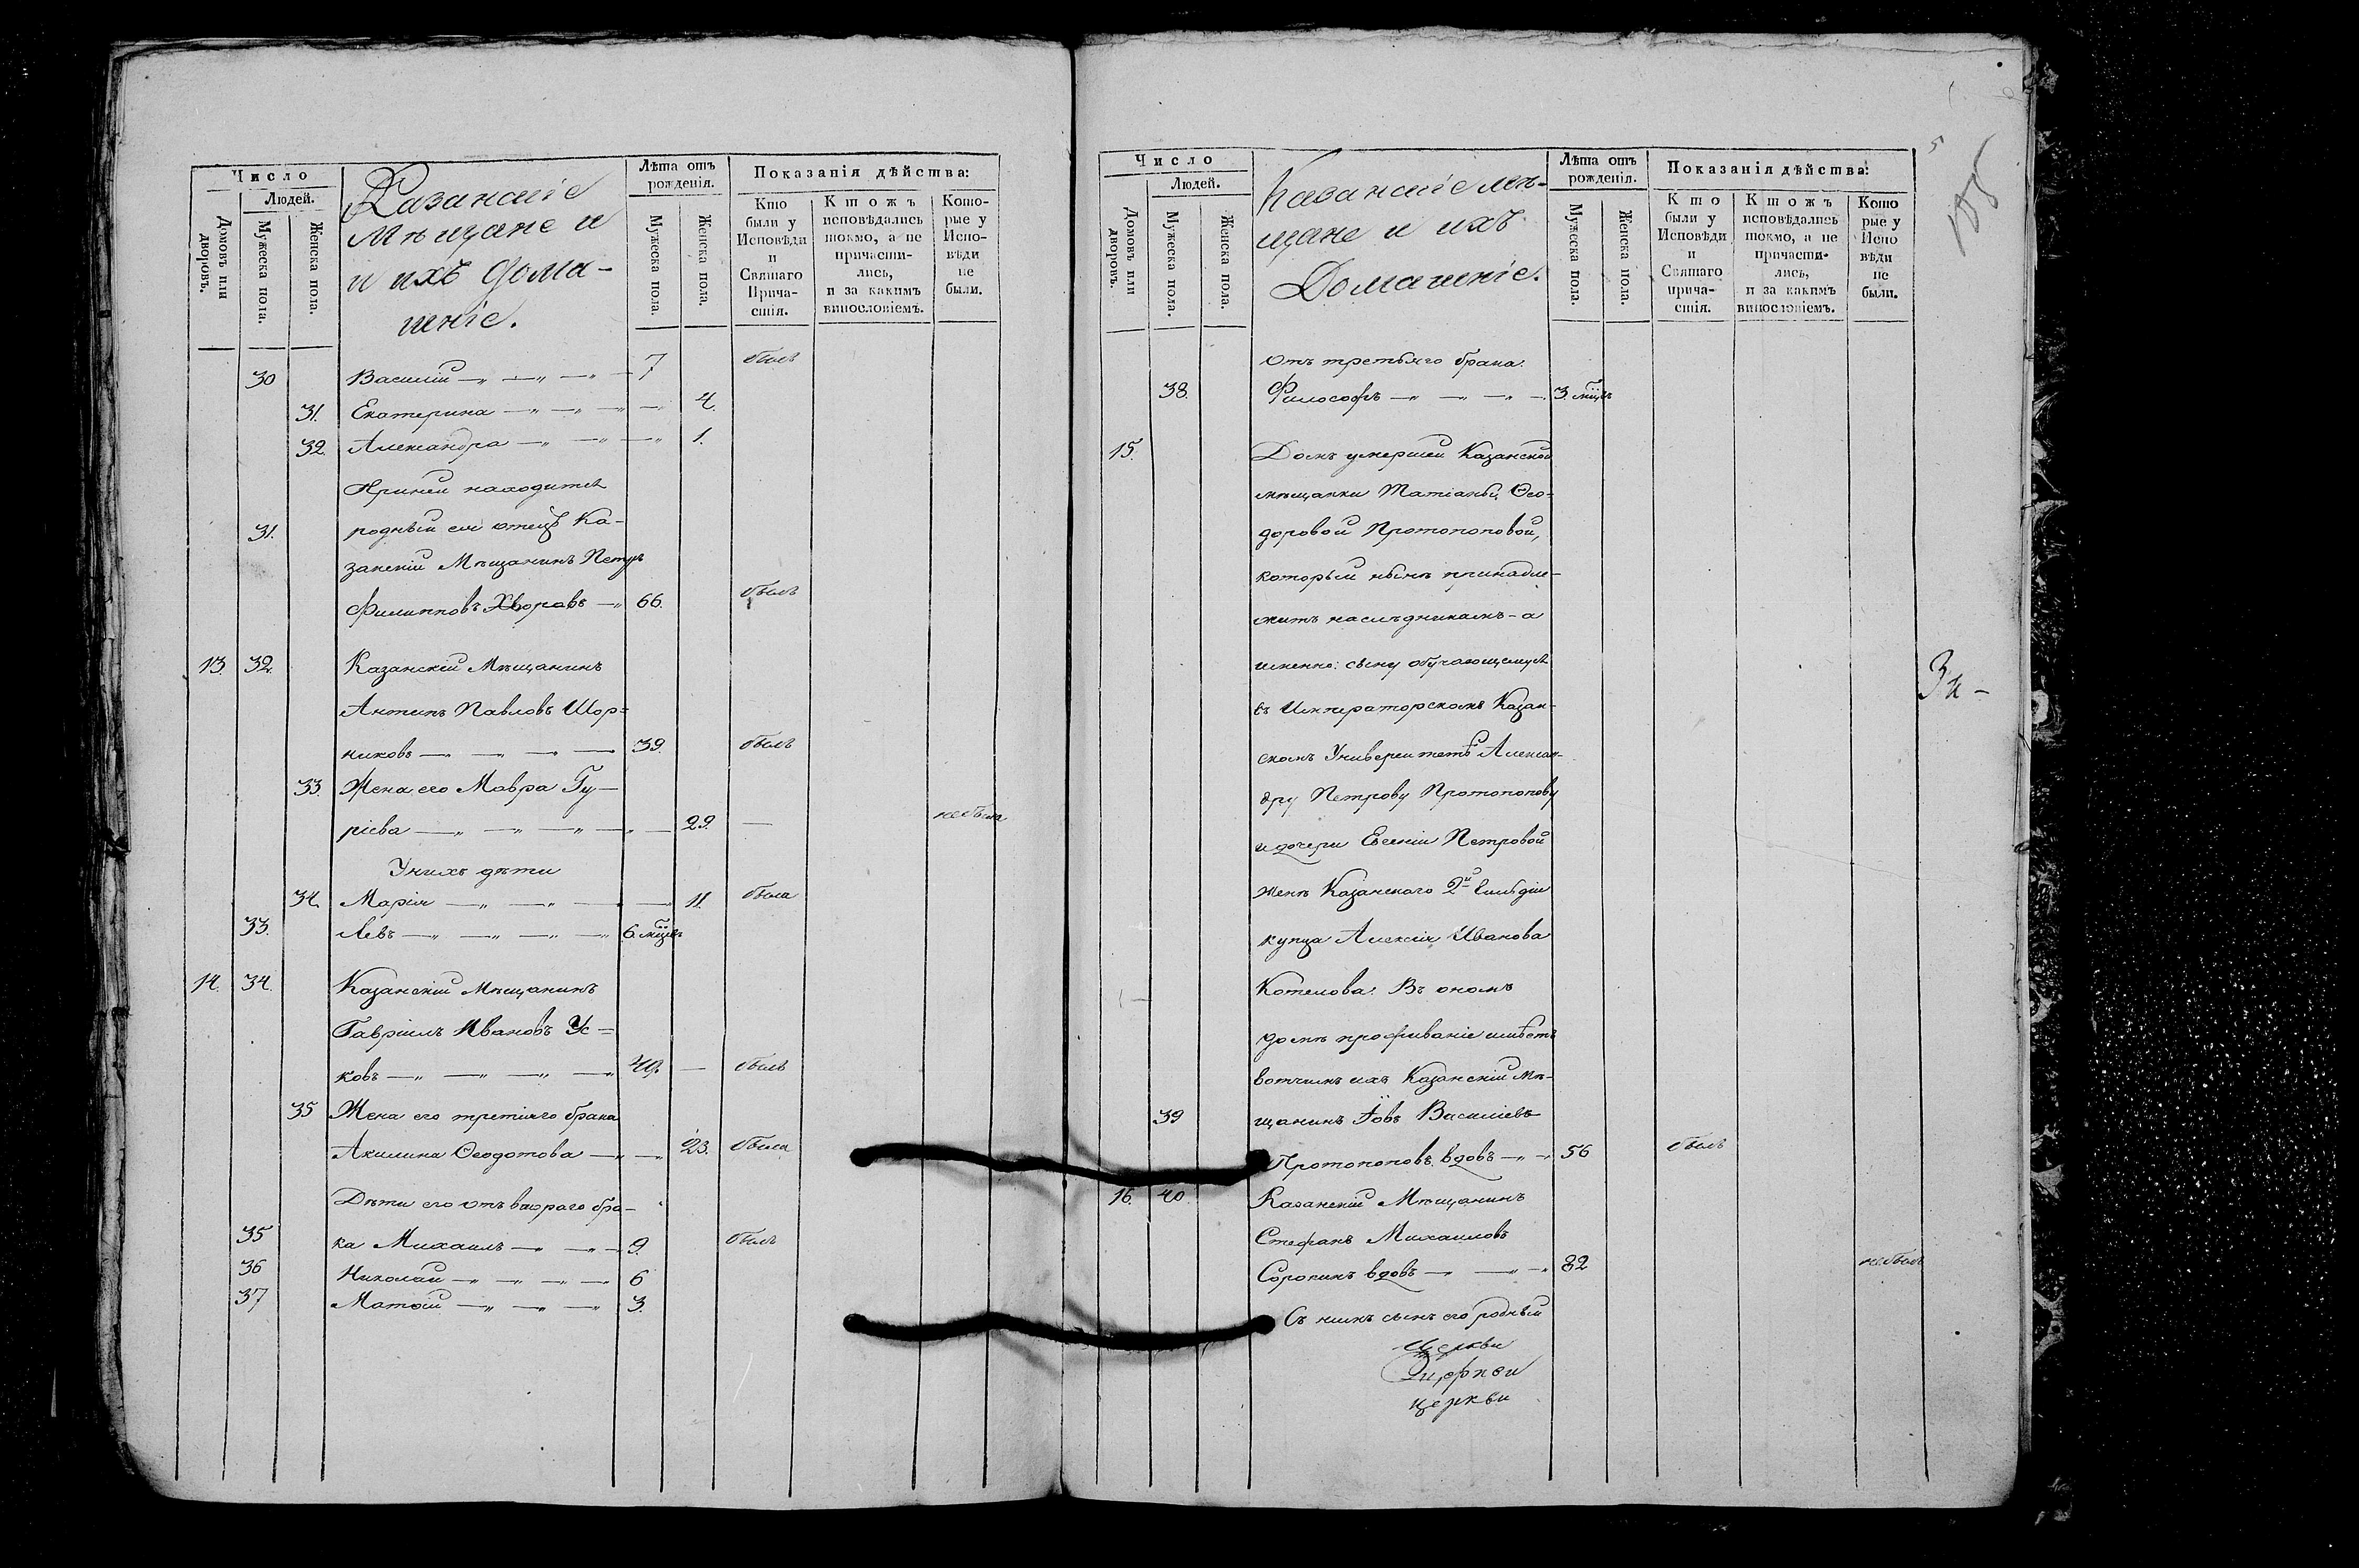 Число
Людей.
Домовъ или дворовъ.
Мужеска пола.
Женска пола.
Казанскіе
Мѣщане и
и ихъ дома-
шніе.
Лѣта отъ рожденія.
Мужеска пола.
Женска пола.
Показанія дѣйства:
Кто были у Исповѣди и Святаго Прича-стія.
Ктожъ исповѣдались токмо, а не причасти-лись, и за какимъ винословіемъ.
Кото-рые у Испо-вѣди не были.
30 Василій 7 былъ
31. Екатерина 4.
32. Александра 1.
При ней находится
31. родный ея отецъ Ка-
занскій Мѣщанинъ Петръ
Филипповъ Хворовъ 66. былъ
13. 32. Казанскій Мѣщанинъ
Антипъ Павловъ Шор=
никовъ 39. былъ
33. Жена его Мавра Гу-
рієва 29. не была
У нихъ дѣти
34. Марія 11. была
33. Левъ 6. мѣсяцъ
14. 34. Казанскій Мѣщанинъ
Гавріилъ Ивановъ Ус=
ковъ 49. былъ
35 Жена его третіяго брака
Акилина Ѳеодотова 23. была
Дѣти его отъ втораго бра-
35 ка Михаилъ 9. былъ
36 Николай 6
37 Матѳій 3.
5
185
Число
Людей.
Домовъ или дворовъ.
Мужеска пола.
Женска пола.
Казанскіе мѣ-
щане и ихъ
Домашніе.
Лѣта отъ рожденія.
Мужеска пола.
Женска пола.
Показанія дѣйства:
Кто были у Исповѣди и Святаго прича-стія.
Ктожъ исповѣдались токмо, а не причасти-лись, и за какимъ винословіемъ.
Кото рые у Испо вѣди не были.
Отъ третьяго брака
38. Философъ 3. мѣсяцъ
15. Домъ умершей Казанской
мѣщанки Татіаны Ѳео-
доровой Протопоповой,
который нынѣ принадле-
житъ наслѣдникамъ - а
именно: сыну обучающемуся
въ Императорскомъ Казан-
скомъ Университетѣ Алексан-
дру Петрову Протопопову
и дочери Евгеніи Петровой
женѣ Казанскаго 2й гильдіи
купца Алексія Иванова
Котелова. Въ ономъ
домѣ проживаніе имѣетъ
вотчимъ ихъ Казанскій Мѣ-
39 щанинъ Іовъ Василіевъ
Протопоповъ вдовъ 56 былъ
16. 40. Казанскій Мѣщанинъ
Стефанъ Михаиловъ
Сорокинъ вдовъ 82 не былъ
Съ нимъ сынъ его родный
Церкви
церкви